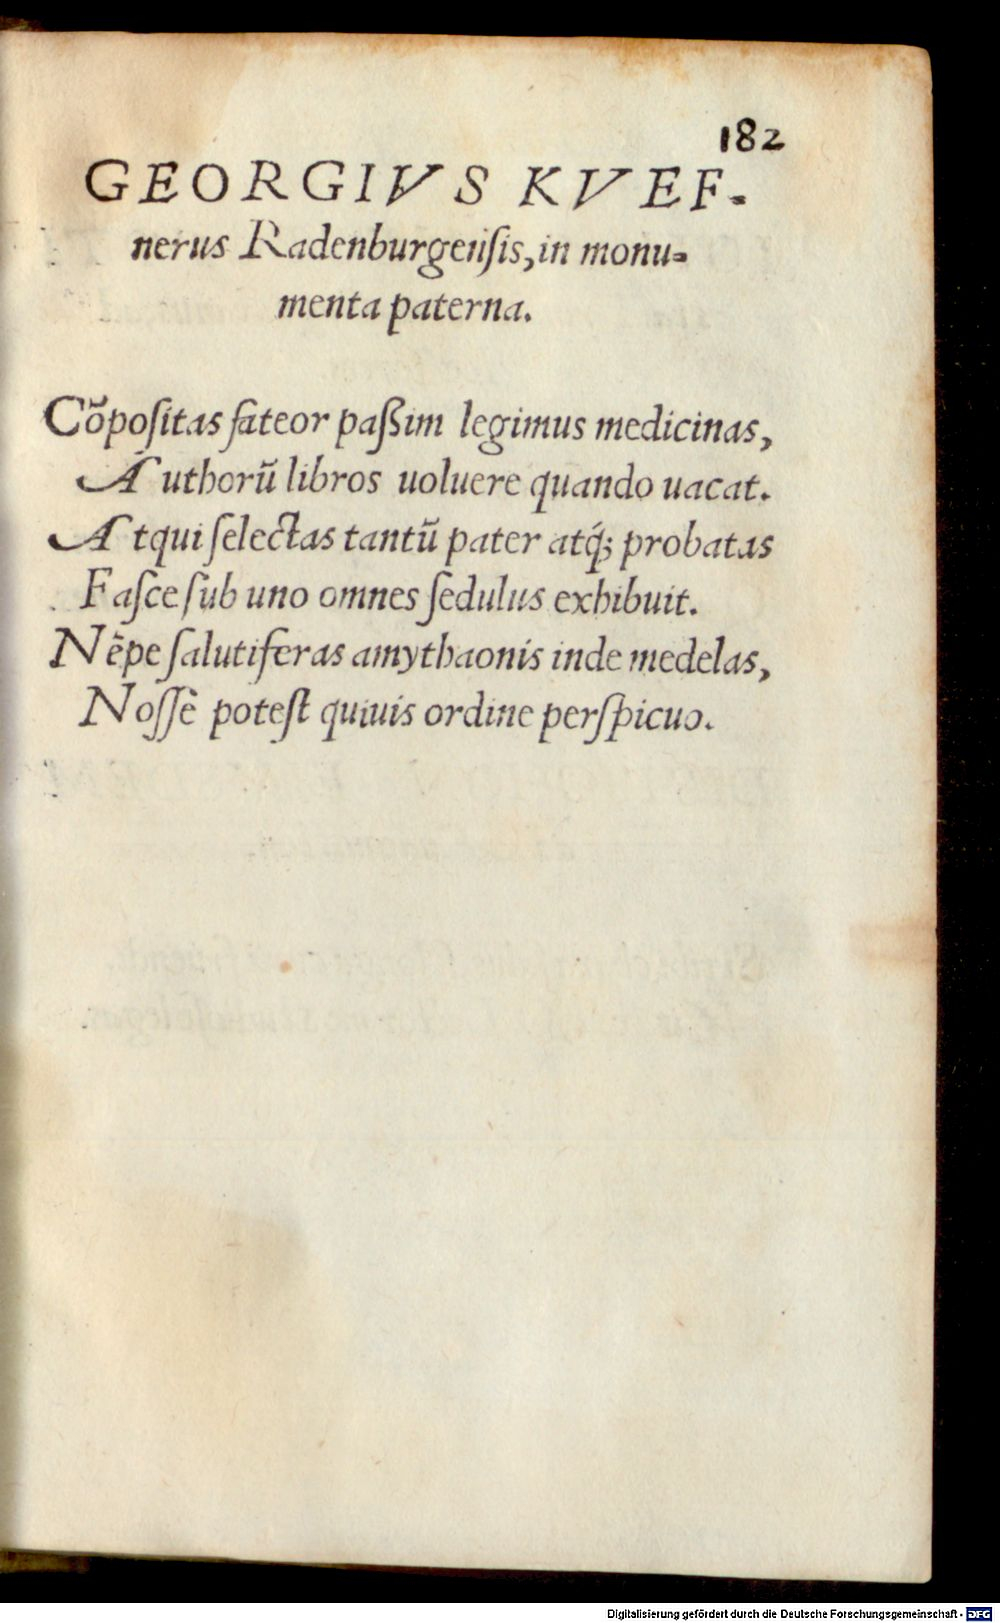 182
GEORGIVS KVEF-
nerus Radenburgenſis, in monu-
menta paterna.
Cõpoſitas fateor paßim legimus medicinas,
Authorũ libros uoluere quando uacat.
Atqui ſelectas tantũ pater atq́; probatas
Faſce ſub uno omnes ſedulus exhibuit.
Nẽpe ſalutiferas amythaonis inde medelas,
Noſſè poteſt quiuis ordine perſpicuo.
Digitalisierung gefördert durch die Deutsche Forschungsgemeinschaft - DFG